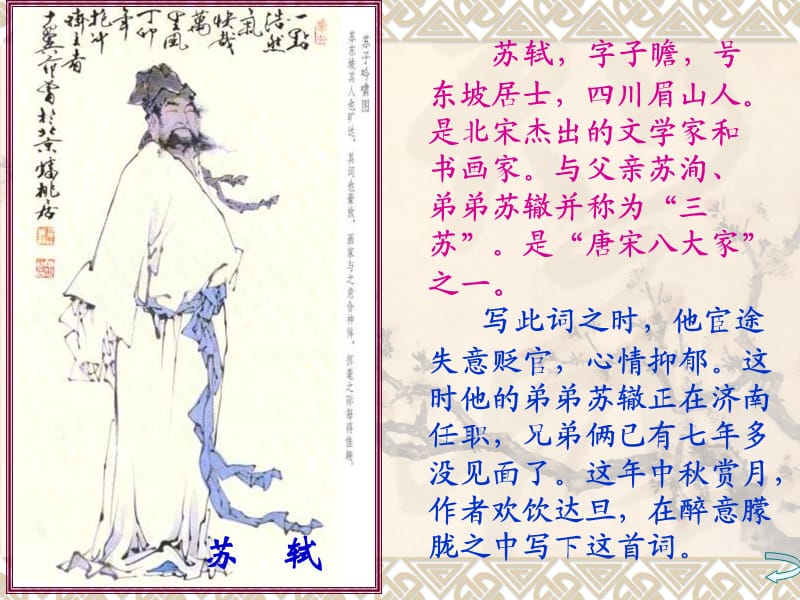 一點
浩然
氣
快哉
萬
里風
丁卯
年
抱冲
齋主者
十翼范曾於北京蟠桃居
苏子吟啸图
苏东坡其人也旷达，其词也豪放，画家与之意合神侔，挥毫之际每得佳趣。
苏 轼
苏轼，字子瞻，号
东坡居士，四川眉山人。
是北宋杰出的文学家和
书画家。与父亲苏洵、
弟弟苏辙并称为“三
苏”。是“唐宋八大家”
之一。
写此词之时，他宦途
失意贬官，心情抑郁。这
时他的弟弟苏辙正在济南
任职，兄弟俩已有七年多
没见面了。这年中秋赏月，
作者欢饮达旦，在醉意朦
胧之中写下这首词。